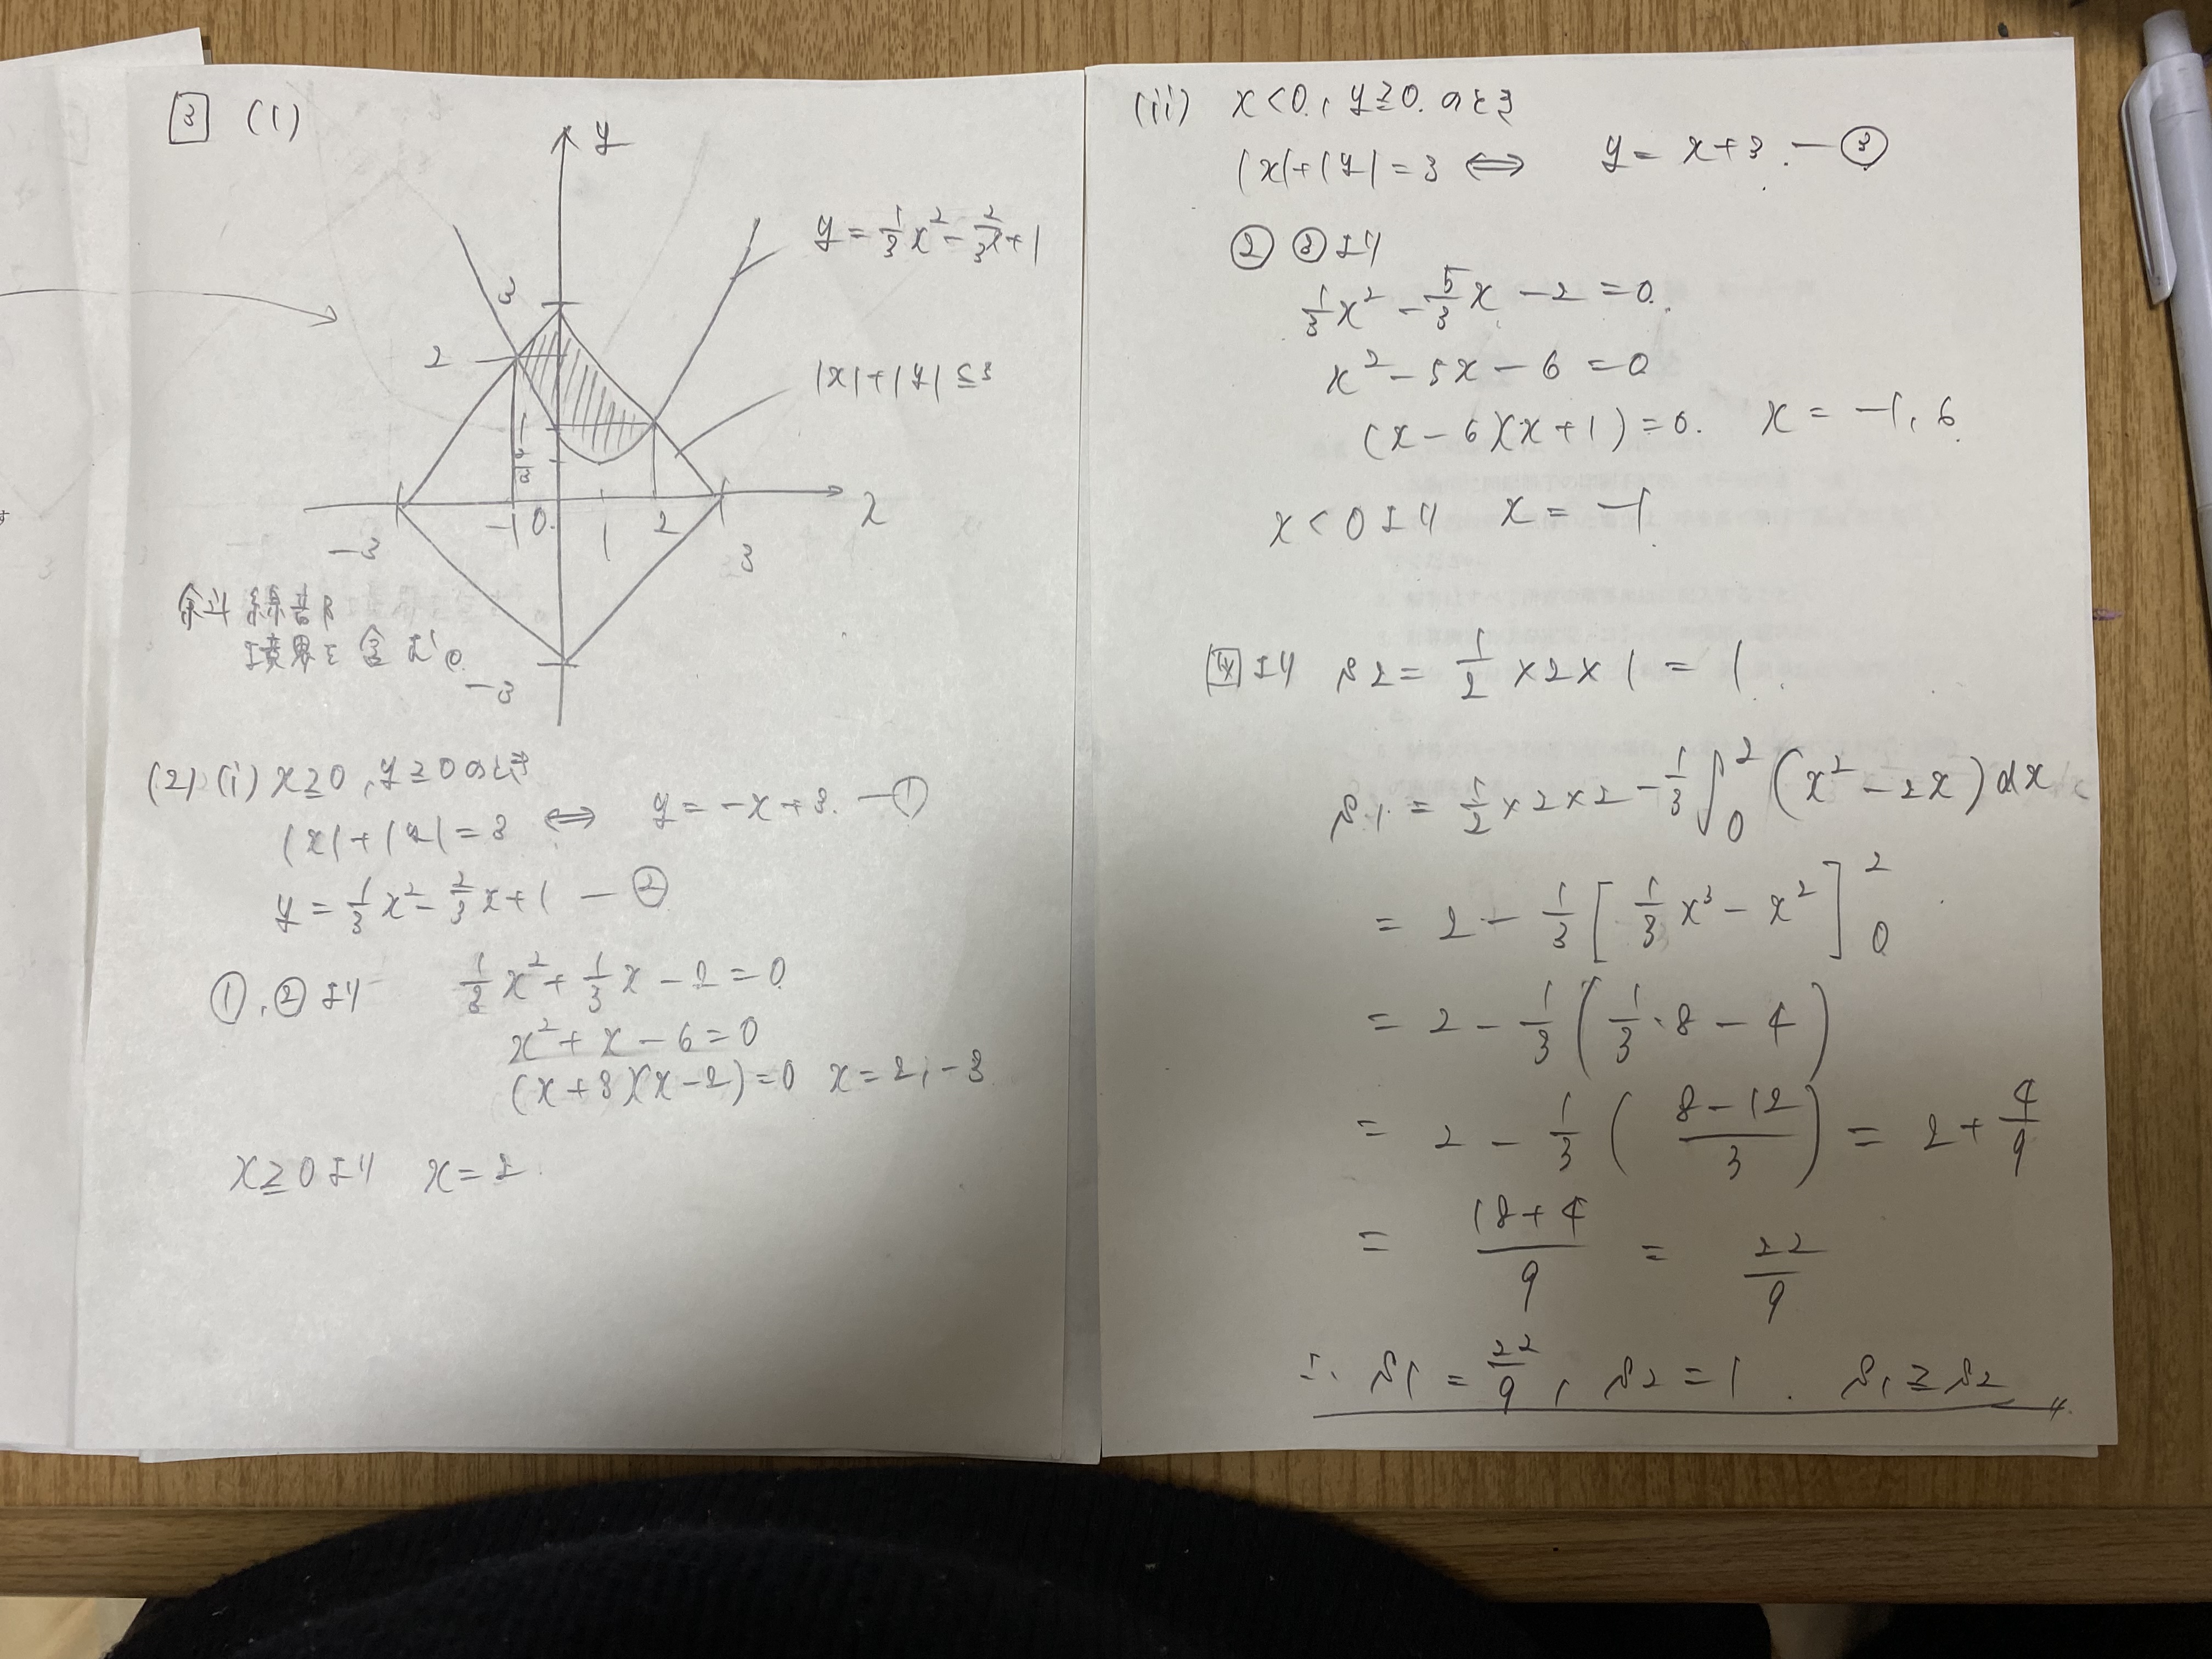 3 (1)
y
y = 1/3 x² - 2/3 x + 1
3
2
|x| + |y| ≦ 3
1
2/3
-3 -1 0 1 2 3 x
斜線部
境界を含む。
-3
(2) (i) x ≧ 0, y ≧ 0 のとき
|x| + |y| = 3 ⇔ y = -x + 3. — ①
y = 1/3 x² - 2/3 x + 1 — ②
①, ② より 1/3 x² + 1/3 x - 2 = 0
x² + x - 6 = 0
(x + 3)(x - 2) = 0 x = 2, -3
x ≧ 0 より x = 2.
(ii) x < 0, y ≧ 0. のとき
|x| + |y| = 3 ⇔ y = x + 3. — ③
② ③ より
1/3 x² - 5/3 x - 2 = 0.
x² - 5x - 6 = 0
(x - 6)(x + 1) = 0. x = -1, 6.
x < 0 より x = -1.
図より S2 = 1/2 × 2 × 1 = 1.
S1 = 1/2 × 2 × 2 - 1/3 ∫₀² (x² - 2x) dx
= 2 - 1/3 [ 1/3 x³ - x² ]₀²
= 2 - 1/3 ( 1/3 · 8 - 4 )
= 2 - 1/3 ( (8 - 12)/3 ) = 2 + 4/9
= (18 + 4)/9 = 22/9
∴ S1 = 22/9, S2 = 1. S1 ≧ S2